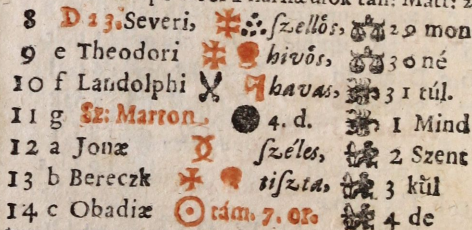 8 D 23. Severi, ſzellős, 29 mon
9 e Theodori hivős, 30 né
10 f Landolphi havas, 31 túl.
11 g Sz: Marton, 4. d. 1 Mind
12 a Jonæ ſzéles, 2 Szent
13 b Bereczk tiſzta, 3 kűl
14 c Obadiæ tám. 7. or. 4 de